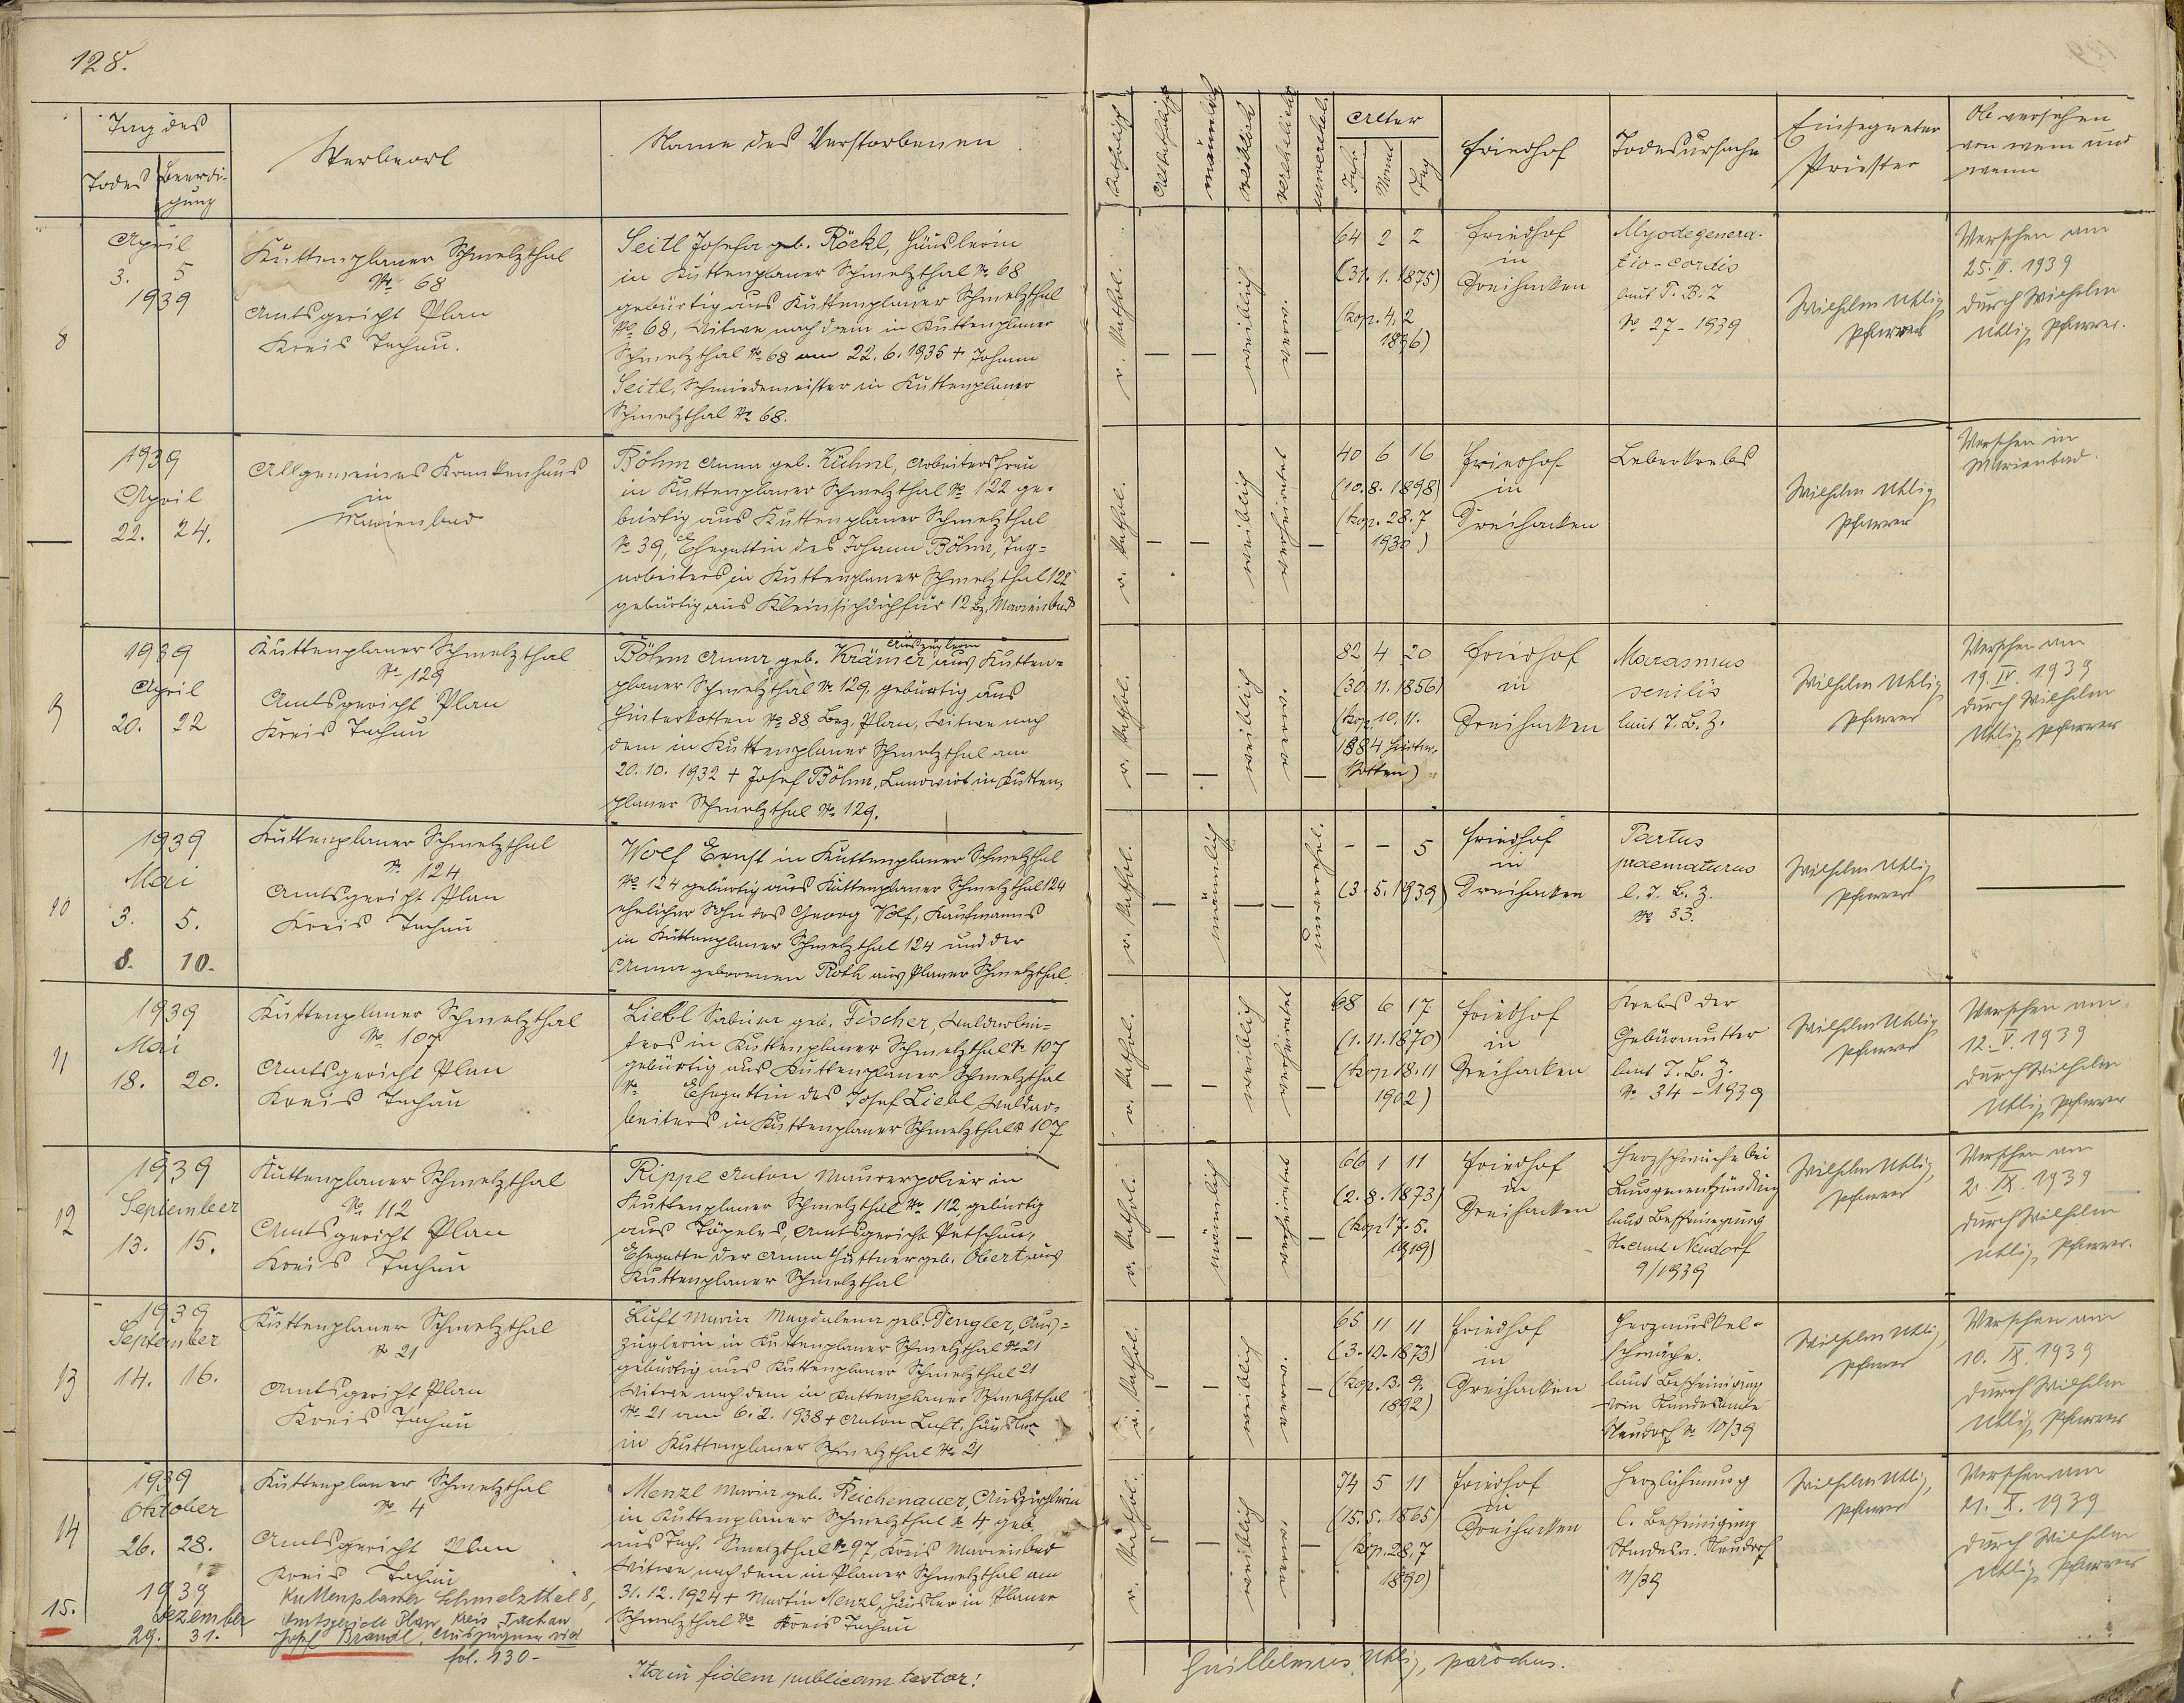 128.
Tag des
Todes
Beerdi-
gung
Sterbeort
Name des Verstorbenen
8
April
3. 5
1939
Kuttenplaner Schmelzthal
No 68
Amtsgericht Plan
Kreis Tachau.
Seitl Josefa geb. Röckl, Häuslerin
in Kuttenplaner Schmelzthal No 68
gebürtig aus Kuttenplaner Schmelzthal
No 68, Witwe nach dem in Kuttenplaner
Schmelzthal No 68 am 22. 6. 1935 + Johann
Seitl, Schmiedemeister in Kuttenplaner
Schmelzthal No 68.
—
1939
April
22. 24.
Allgemeines Krankenhaus
in
Marienbad
Böhm Anna geb. Kühnl, Arbeitersfrau
in Kuttenplaner Schmelzthal No 122 ge-
bürtig aus Kuttenplaner Schmelzthal
No 39, Ehegattin des Johann Böhm, Tag-
arbeiters in Kuttenplaner Schmelzthal 122
gebürtig aus Kleinsichdichfür 12 Bz. Marienbad
9
1939
April
20. 22
Kuttenplaner Schmelzthal
No 129
Amtsgericht Plan
Kreis Tachau
Auszüglerin
Böhm Anna geb. Krämer aus Kutten-
planer Schmelzthal No 129, gebürtig aus
Hinterkotten No 88 Bez. Plan, Witwe nach
dem in Kuttenplaner Schmelzthal am
20. 10. 1932 + Josef Böhm, Landwirt in Kutten-
planer Schmelzthal No 129.
10
1939
Mai
3. 5.
8. 10.
Kuttenplaner Schmelzthal
No 124
Amtsgericht Plan
Kreis Tachau
Wolf Ernst in Kuttenplaner Schmelzthal
No 124 gebürtig aus Kuttenplaner Schmelzthal 124
ehelicher Sohn des Georg Wolf, Kaufmanns
in Kuttenplaner Schmelzthal 124 und der
Anna geborenen Roth aus Planer Schmelzthal.
11
1939
Mai
18. 20.
Kuttenplaner Schmelzthal
No 107
Amtsgericht Plan
Kreis Tachau
Liebl Sabina geb. Fischer, Waldarbei-
ters in Kuttenplaner Schmelzthal No 107
gebürtig aus Kuttenplaner Schmelzthal
No Ehegattin des Josef Liebl Waldar-
beiters in Kuttenplaner Schmelzthal No 107
12
1939
September
13. 15.
Kuttenplaner Schmelzthal
No 112
Amtsgericht Plan
Kreis Tachau
Rippl Anton Maurerpolier in
Kuttenplaner Schmelzthal No 112 gebürtig
aus Töpeles, Amtsgericht Petschau,
Ehegatte der Anna Hüttner geb. Obert aus
Kuttenplaner Schmelzthal
13
1939
September
14. 16.
Kuttenplaner Schmelzthal
No 21
Amtsgericht Plan
Kreis Tachau
Luft Maria Magdalena geb. Pengler, Aus-
züglerin in Kuttenplaner Schmelzthal No 21
gebürtig aus Kuttenplaner Schmelzthal 21
Witwe nach dem in Kuttenplaner Schmelzthal
No 21 am 6. 2. 1938 + Anton Luft, Häusler
in Kuttenplaner Schmelzthal No 21
14
1939
Oktober
26. 28.
Kuttenplaner Schmelzthal
No 4
Amtsgericht Plan
Kreis Tachau
Menzl Maria geb. Reichenauer, Auszüglerin
in Kuttenplaner Schmelzthal No 4 geb.
aus Tach. Schmelzthal No 97, Kreis Marienbad
Witwe nach dem in Planer Schmelzthal am
31. 12. 1924 + Martin Menzl, Häusler in Planer
Schmelzthal No Kreis Tachau
15.
1939
Dezember
29. 31.
Kuttenplaner Schmelzthal 8,
Amtsgericht Plan, Kreis Tachau
Josef Brandl, Auszügner vid
fol. 130-
Ita in fidem publicam testor!
Katholisch
männlich
weiblich
verehelicht
unverehel.
Alter
Jahr
Monat
Tag
Friedhof
Todesursache
Einsegneter
Priester
Ob versehen
von wem und
wann
r. kathol.
—
—
weiblich
verw.
—
64 2 2
(31. 1. 1875)
(kop. 4. 2
1896)
Friedhof
in
Dreihacken
Myodegenera-
tio-cordis
laut T. B. Z
No 27-1939
Wilhelm Uhlig
Pfarrer
Versehen am
25. II. 1939
durch Wilhelm
Uhlig Pfarrer.
r. kathol.
—
—
weiblich
verheiratet
—
40 6 16
(10. 8. 1898)
(kop. 28. 7
1930)
Friedhof
in
Dreihacken
Leberkrebs
Wilhelm Uhlig
Pfarrer
Versehen in
Marienbad.
r. kathol.
—
—
weiblich
verw.
—
82 4 20
(30. 11. 1856)
(kop. 10. 11.
1884 Hinter-
kotten)
Friedhof
in
Dreihacken
Marasmus
senilis
laut T. B. Z.
Wilhelm Uhlig
Pfarrer
Versehen am
19. IV. 1939
durch Wilhelm
Uhlig Pfarrer
r. kathol.
—
männlich
—
—
unverehel.
- - 5
(3. 5. 1939)
Friedhof
in
Dreihacken
Partus
praematurus
l. T. B. Z.
No 33.
Wilhelm Uhlig
Pfarrer
—
r. kathol.
—
—
weiblich
verheiratet
—
68 6 17
(1. 11. 1870)
(kop 18. 11
1902)
Friedhof
in
Dreihacken
Krebs der
Gebärmutter
laut T. B. Z.
No 34-1939
Wilhelm Uhlig
Pfarrer
Versehen am
12. V. 1939
durch Wilhelm
Uhlig Pfarrer
r. kathol.
—
männlich
—
verheiratet
—
66 1 11
(2. 8. 1873)
(kop 17. 5.
1919)
Friedhof
in
Dreihacken
Herzschwäche bei
Lungenentzündung
laut Bescheinigung
St. Amt Neudorf
9/1939
Wilhelm Uhlig,
Pfarrer
Versehen am
2. IX. 1939
durch Wilhelm
Uhlig, Pfarrer.
r. kathol.
—
—
weiblich
verw.
—
65 11 11
(3. 10. 1873)
(kop. 13. 9.
1892)
Friedhof
in
Dreihacken
Herzmuskel-
schwäche.
laut Bescheinigung
vom Standesamte
Neudorf No 10/39
Wilhelm Uhlig,
Pfarrer
Versehen am
10. IX. 1939
durch Wilhelm
Uhlig Pfarrer
r. kathol.
—
—
weiblich
verw.
—
74 5 11
(15. 5. 1865)
(kop. 28. 7
1890)
Friedhof
in
Dreihacken
Herzlähmung
l. Bescheinigung
Standesa. Neudorf
11/39
Wilhelm Uhlig,
Pfarrer
Versehen am
21. X. 1939
durch Wilhelm
Uhlig Pfarrer
Guillelmus Uhlig, parochus.